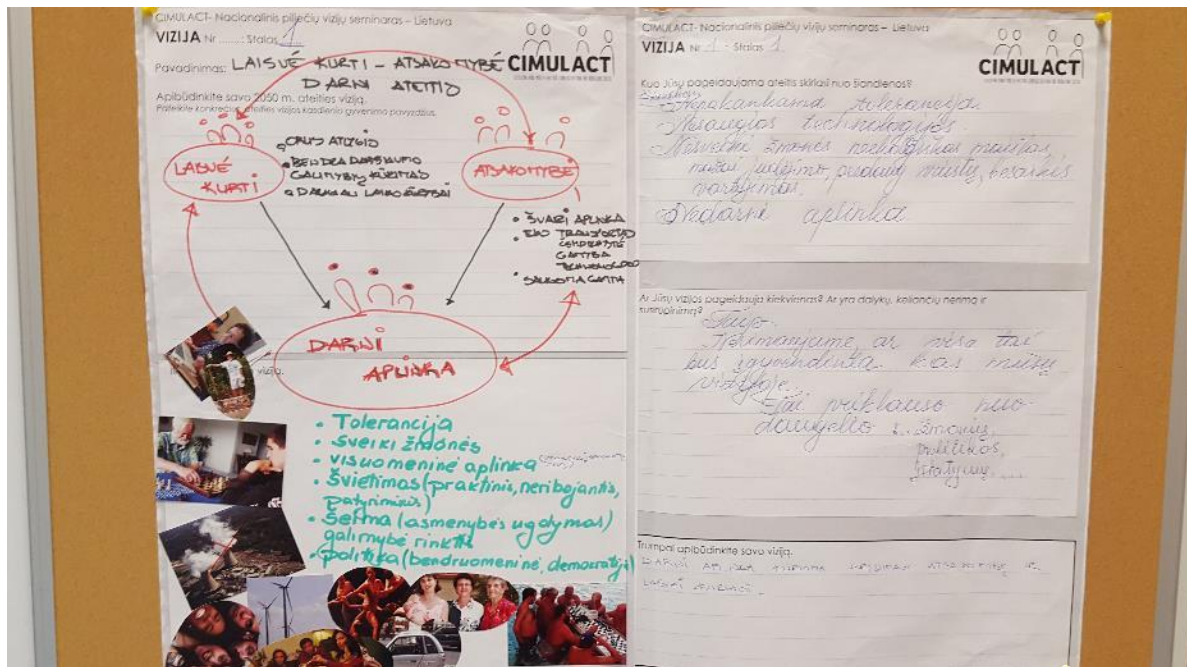 CIMULACT- Nacionalinis piliečių vizijų seminaras – Lietuva
VIZIJA Nr ......: Stalas 1
CIMULACT
Pavadinimas: LAISVĖ KURTI – ATSAKOMYBĖ
DARNI ATEITIS
Apibūdinkite savo 2050 m. ateities viziją.
Pateikite konkrečius ateities vizijos kasdienio gyvenimo pavyzdžius.
LAISVĖ
KURTI
ATSAKOMYBĖ
• BENDRADARBIAVIMO
GALIMYBIŲ KŪRIMAS
• DAUGIAU LAIKO KŪRYBAI
• ŠVARI APLINKA
• EKO TRANSPORTO
GAMYBA
• SAUGOMA GAMTA
DARNI
APLINKA
viziją.
• Tolerancija
• Sveiki žmonės
• visuomeninė aplinka
• Švietimas (praktinis, neribojantis,
patyriminis)
• Šeima (asmenybės ugdymas)
galimybė rinktis
• politika (bendruomeninė, demokratija)
CIMULACT- Nacionalinis piliečių vizijų seminaras – Lietuva
VIZIJA Nr 1 - Stalas 1
CIMULACT
Kuo Jūsų pageidaujama ateitis skiriasi nuo šiandienos?
Nepakankama tolerancija
Nesaugios technologijos.
Nesveiki žmonės neekologiškas maistas,
mažai judėjimo, pusdalų maistų, besaikis
vartojimas.
Nedarni aplinka
Ar Jūsų vizijos pageidauja kiekvienas? Ar yra dalykų, keliančių nerimą ir
susirūpinimą?
Taip.
ar visa tai
bus įgyvendinta kas mūsų
vizijoje.
Tai priklauso nuo
daugelio : žmonių,
politikos,
Trumpai apibūdinkite savo viziją.
DARNI APLINKA